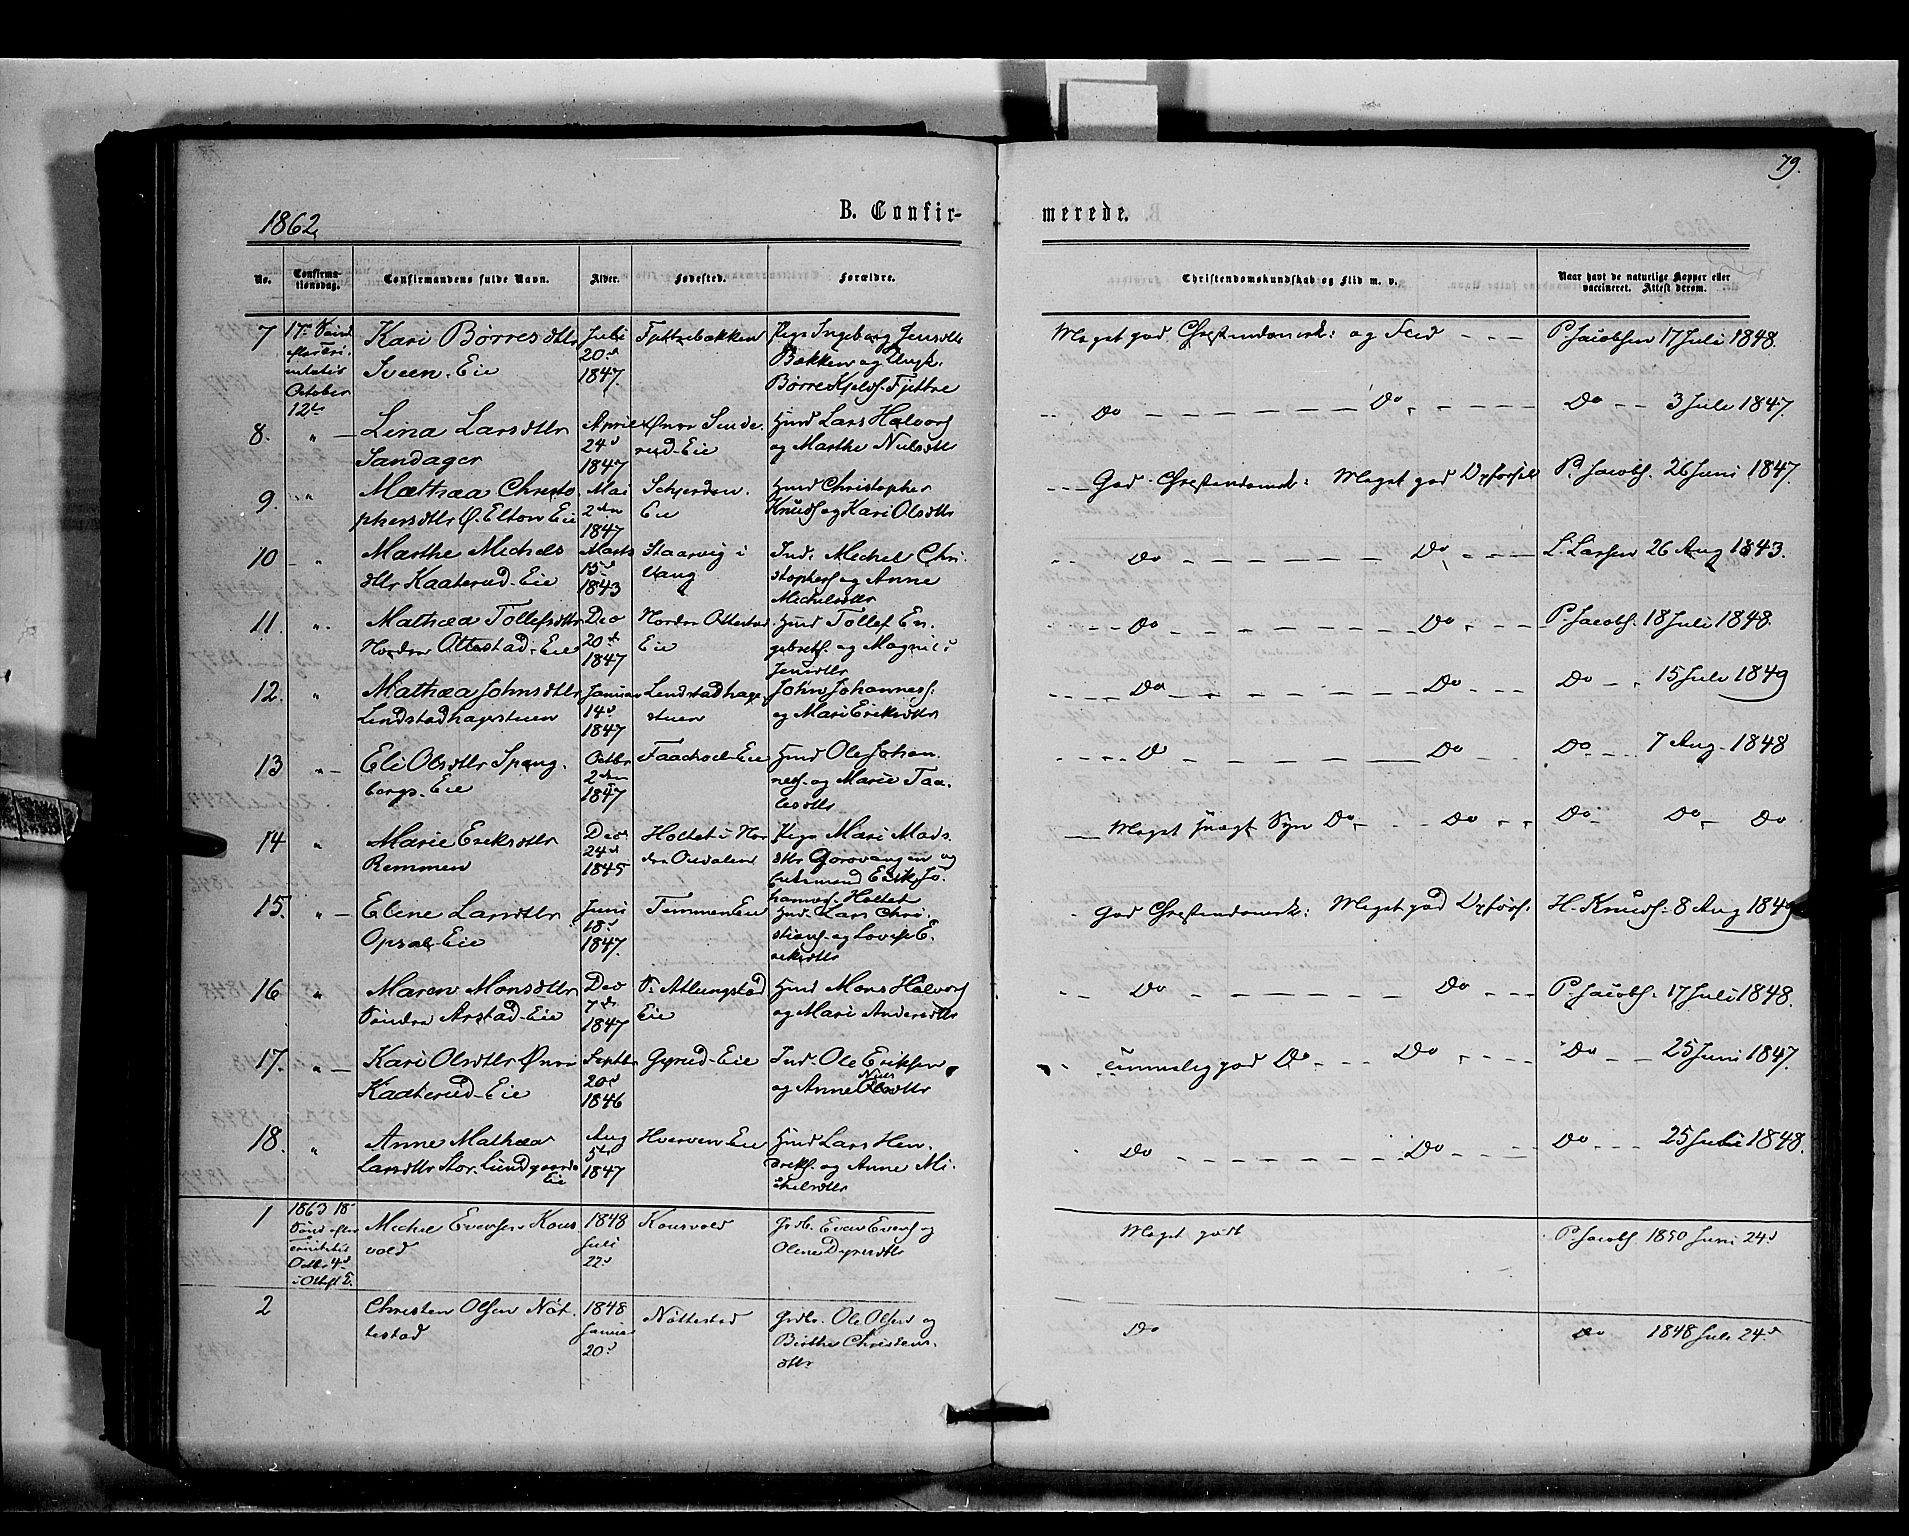 79.
1862.
B. Confir-
merede.
No.
Confirma-
tionsdag.
Confirmandens fulde Navn.
Alder.
Fødested.
Forældre.
Christendomskundskab og Flid m. v.
Naar havt de naturlige Kopper eller
vaccineret. Attest derom.
7
17de Sønd
efter Tri-
nitatis
October
12te
Kari Børresdttr
Sveen-Eie
Juli
20de
1847.
Fjettrebakken
Pige Ingeborg Jensdttr
Bakken og Ungk.
Børre Kjelds. Fjettre
Meget god Christendomsk: og Flid - - -
P. Jacobsen 17 Juli 1848.
8.
" -
Lina Larsdttr
Sandager
April
24de
1847
Øvre Sende-
rud-Eie
Hmd Lars Halvors
og Marthe Nielsdttr
Do
Do
Do - - 3 Juli 1847
9.
"
Mathea Christo
phersdttr Ø. Elton Eie
Mai
2den
1847
Schjerden-
Eie
Hmd Christopher
Knuds og Kari Olsdttr
God Christendomsk: Meget god Opførsel
P. Jacobs. 26 Juni 1847.
10
"
Marthe Michels
dttr Kaaterud-Eie
Marts
15de
1843
Staarvig i
Vang
Ind. Michel Chri-
stophers og Anne
Michelsdttr
Do
Do
L. Larsen 26 Aug 1843.
11.
"
Mathea Tollefsdttr
Nordre Ottestad-Eie
Dec
20de
1847
Nordre Ottestad
Eie
Hmd Tollef En-
gebrets. og Magnil:
Jensdttr
Do
Do
P. Jacobs. 18 Juli 1848.
12.
"
Mathea Johnsdttr
Lindstadhagestuen
Januar
14de
1847
Lindstadhage
stuen
John Johannes:
og Mari Eriksdttr
Do
Do
Do - 15 Juli 1849
13
" -
Eli Olsdttr Spang-
bergs-Eie
Octbr
2den
1847
Faachoel-Eie
Hmd Ole Johan-
nes. og Marie Taa-
lesdttr
D
Do
Do - - 7 Aug 1848
14
"
Marie Eriksdttr
Remmen
Dec
24de
1845
Holtet i Nor
dre Oudalen
Pige Mari Mads-
dttr Gorovangen og
Enkemand Erik Jo-
hannes. Holtet
Meget svagt Syn Do - Do
Do Do Do
15.
" -
Eline Larsdttr
Opsal-Eie
Juni
18de
1847.
Temmen Eie
Hmd. Lars Chri-
stians. og Lovise E-
riksdttr
God Christendomsk: Meget god Opførs:
H. Knuds: 8 Aug 1849
16
"
Maren Monsdttr
Søndre Arstad-Eie
Dec
7de
1847
S. Atlungstad
Eie
Hmd Mons Halvors
og Mari Andersdttr
Do
Do
P. Jacobs: 17 Juli 1848.
17.
" -
Kari Olsdttr Øvre
Kaaterud-Eie
Septbr
20de
1846
Gyrud-Eie
Ind. Ole Eriksen
og Anne Nilsdttr
Temmelig god Do - Do
Do - - 25 Juni 1847.
18.
"
Anne Mathea
Larsdttr Stor-Lundgaards
Eie
Aug
5te
1847
Hverven Eie
Hmd Lars Hen-
driks. og Anne Mi-
chelsdttr
Do
Do
Do - - 25 Juli 1848.
1
1863 18de
Sønd efter
Trinitatis
Octbr 4de
i Ottest K.
Michel Evensen Kons
vold
1848
Juli
22de
Konsvold
Grdb. Even Evens og
Oline Dyresdttr
Meget godt
P. Jacobs. 1850 Juni 24de
2
Christen Olsen Nøt-
testad
1848
Januar
20de
Nøttestad
Grdbr. Ole Olsen og
Birthe Christens-
dttr
Do
Do 1848 Juli 24de